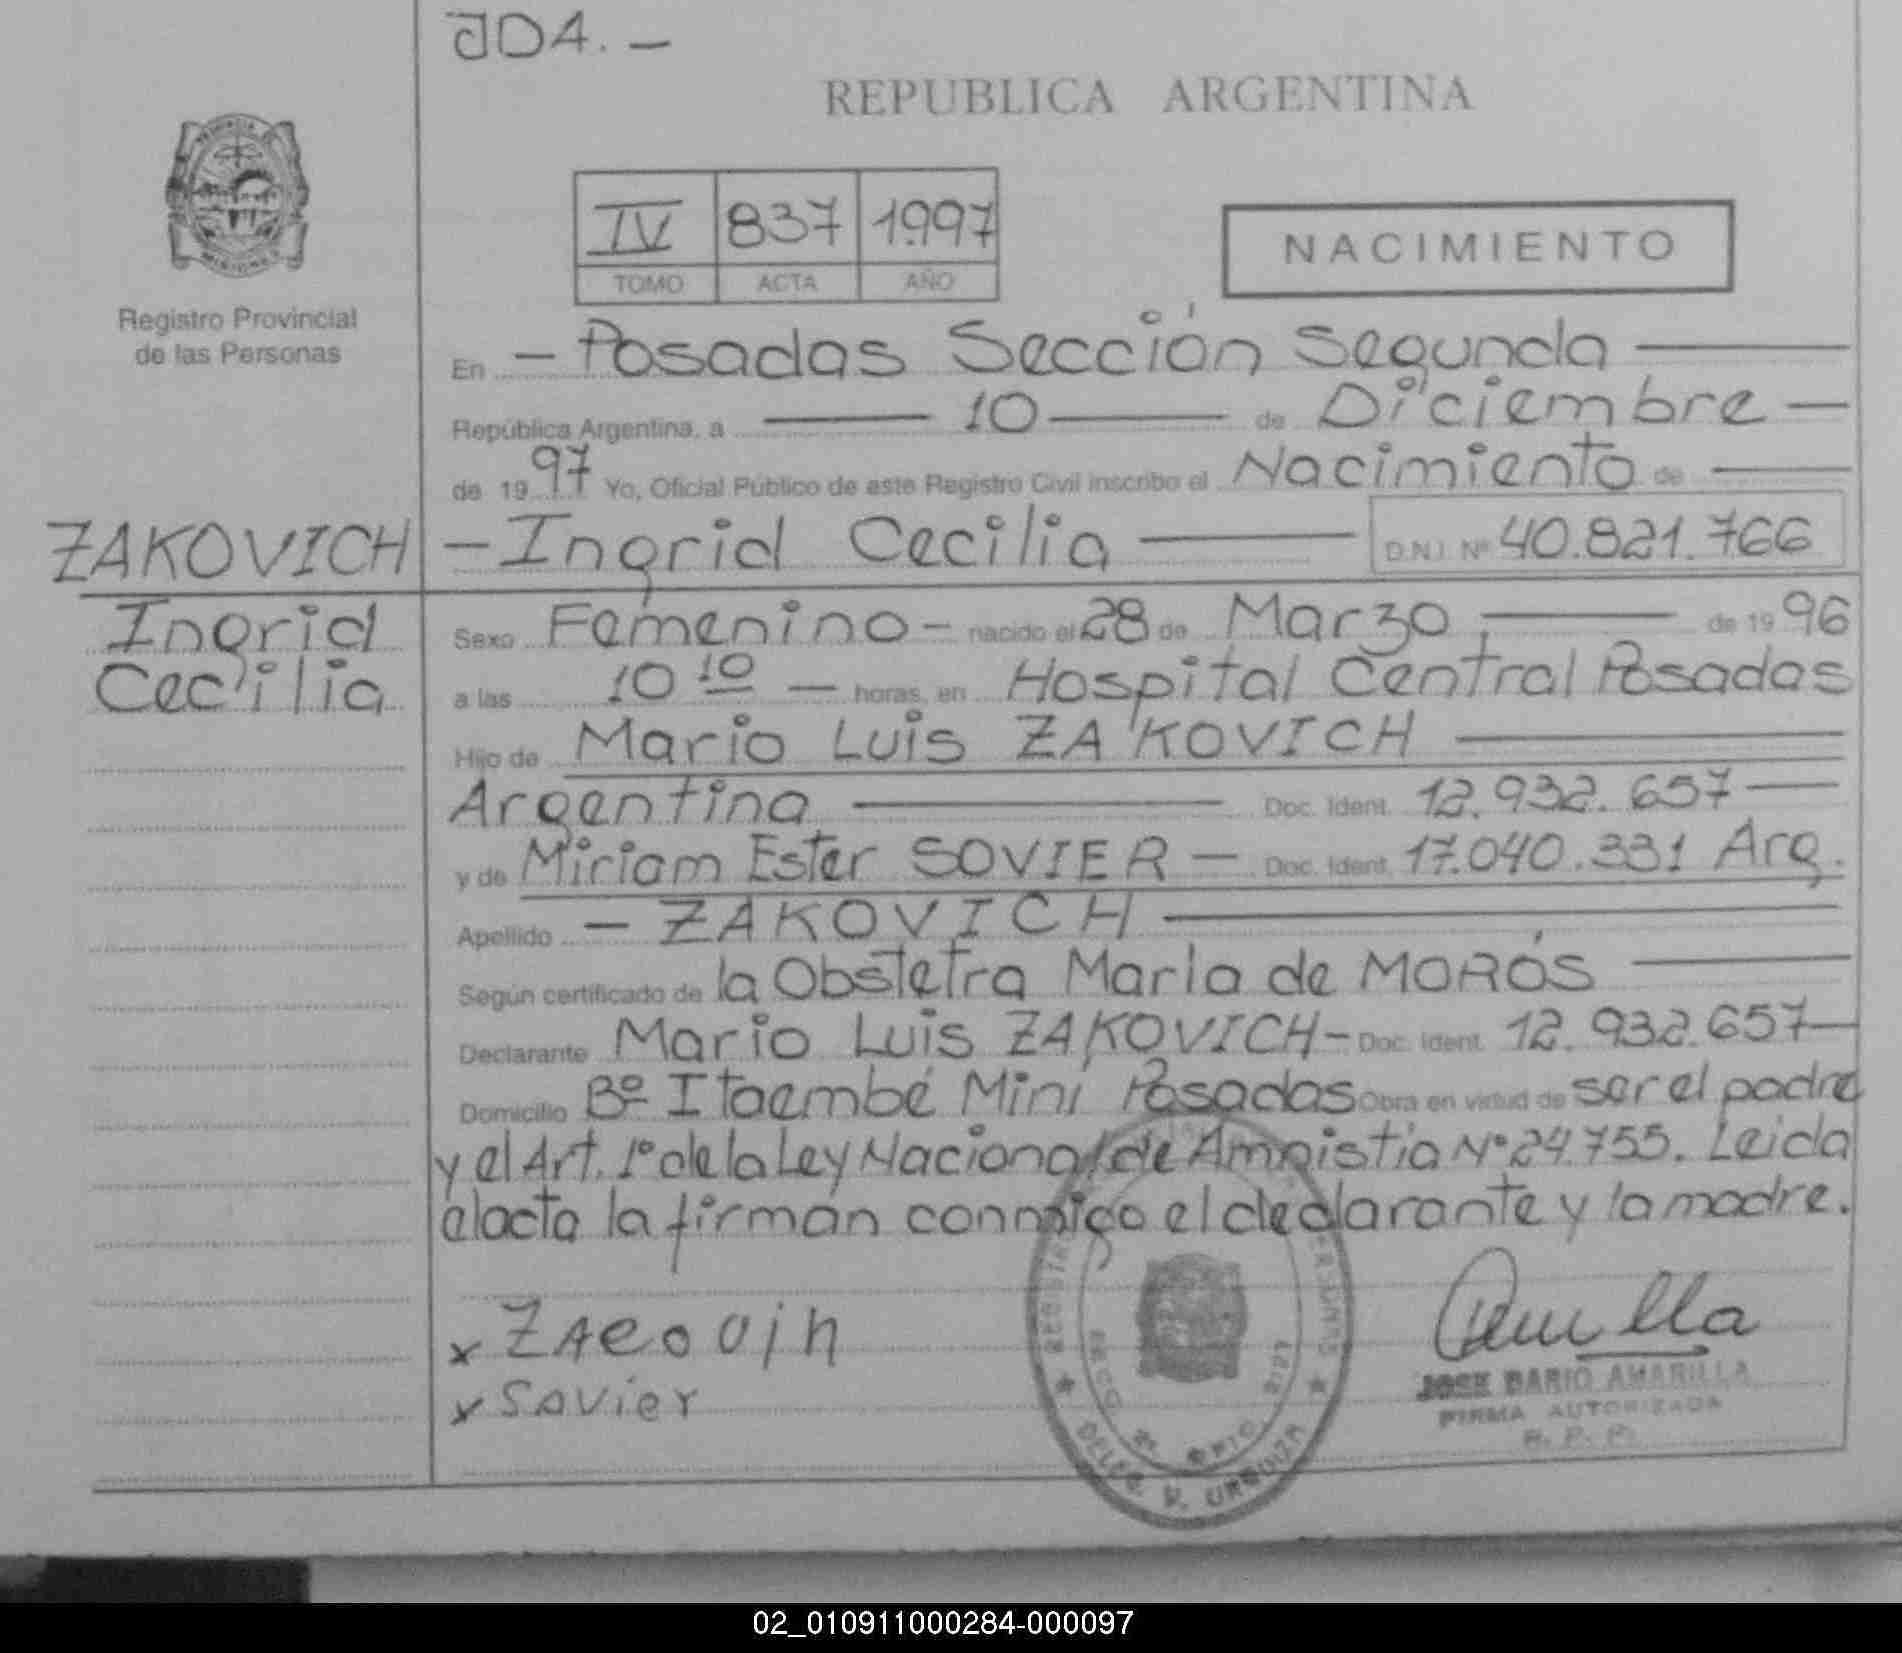 JD4.-
REPUBLICA ARGENTINA
PROVINCIA DE MISIONES
IV 837 1997
TOMO ACTA AÑO
NACIMIENTO
Registro Provincial
de las Personas
En - Posadas Sección Segunda
República Argentina, a 10 de Diciembre -
de 1997 Yo, Oficial Público de este Registro Civil inscribo el Nacimiento de
ZAKOVICH
- Ingrid Cecilia D.N.I. Nº 40.821.766
Ingrid
Cecilia
Sexo Femenino - nacido el 28 de Marzo de 1996
a las 10 10 - horas, en Hospital Central Posadas
Hijo de Mario Luis ZAKOVICH
Argentina Doc. Ident. 12.932.657
y de Miriam Ester SOVIER - Doc. Ident. 17.040.331 Arg.
Apellido - ZAKOVICH
Según certificado de la Obstetra María de MORÓS
Declarante Mario Luis ZAKOVICH - Doc. Ident. 12.932.657
Domicilio Bº Itaembé Miní Posadas Obra en virtud de ser el padre
y el Art. 1º de la Ley Nacional de Amnistía Nº 24.755. Leida
el acta la firman conmigo el declarante y la madre.
x ZAeovih
x Sovier
JOSE DARIO AMARILLA
FIRMA AUTORIZADA
R. P. P.
DELEG. V. URQUIZA
02_010911000284-000097